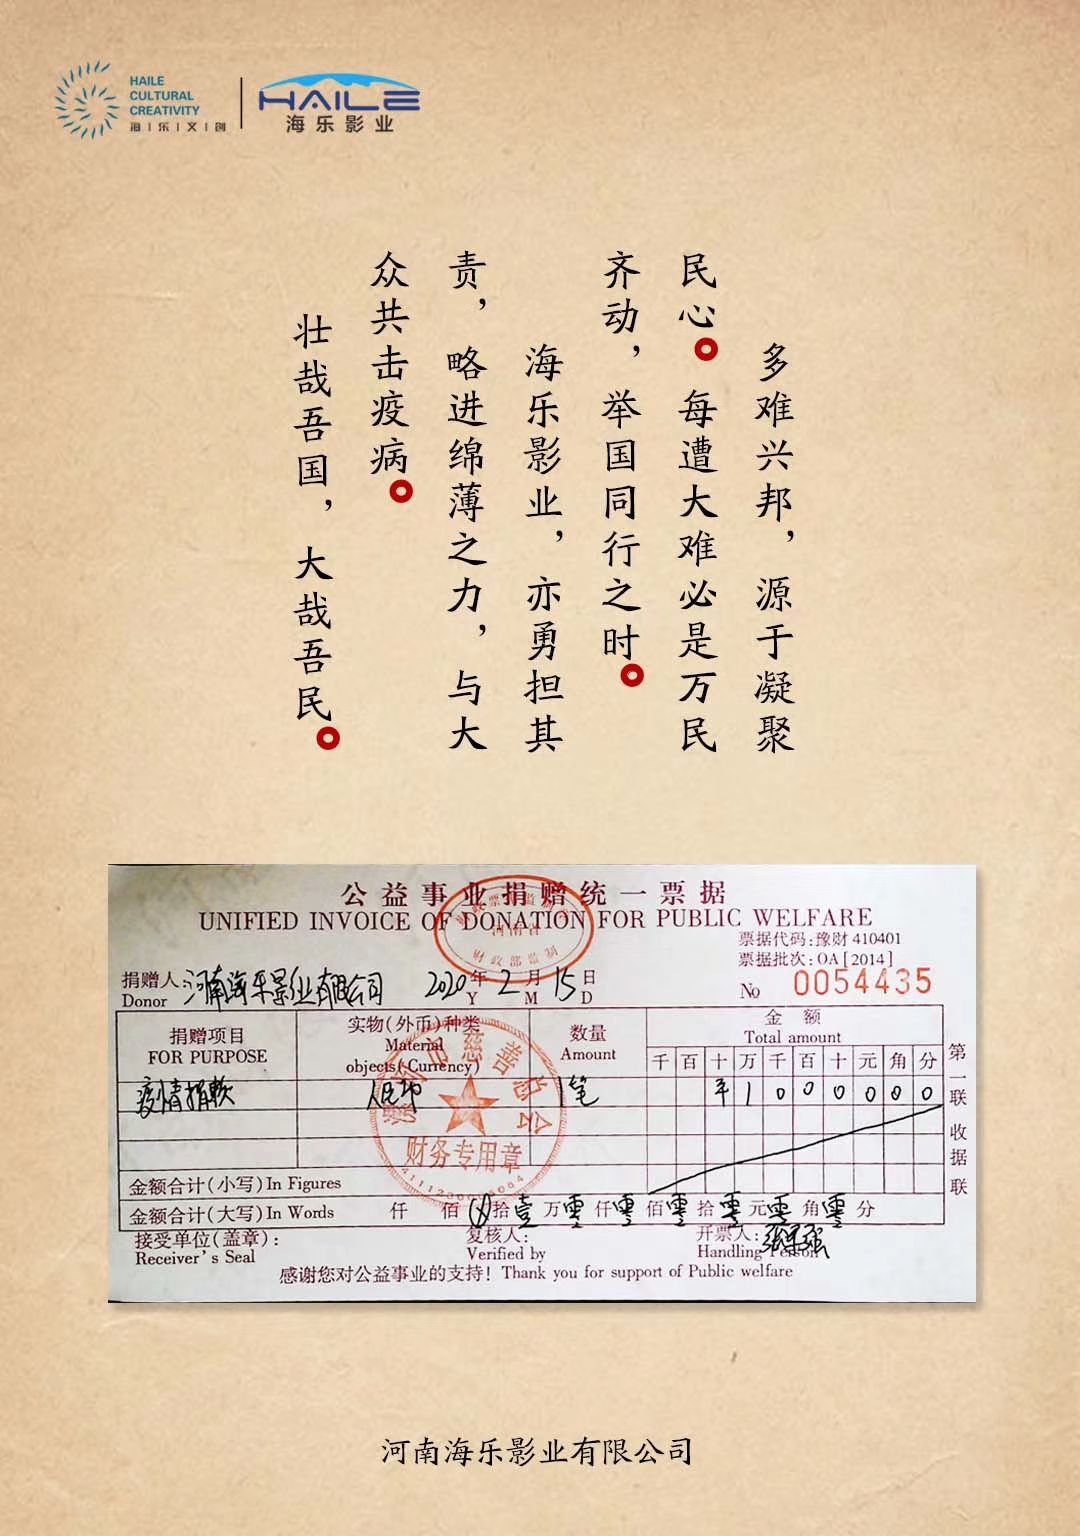 HAILE
CULTURAL
CREATIVITY
海|乐|文|创
HAILE
海乐影业
多难兴邦，源于凝聚
民心。每遭大难必是万民
齐动，举国同行之时。
海乐影业，亦勇担其
责，略进绵薄之力，与大
众共击疫病。
壮哉吾国，大哉吾民。
公益事业捐赠统一票据
UNIFIED INVOICE OF DONATION FOR PUBLIC WELFARE
河南省
财政部监制
票据代码：豫财 410401
票据批次：OA［2014］
捐赠人：河南海乐影业有限公司 2020年 2月 15日
Donor Y M D
No 0054435
捐赠项目 实物（外币）种类 数量 金额
FOR PURPOSE Material objects(Currency) Amount Total amount
千 百 十 万 千 百 十 元 角 分
疫情捐款 人民币 1笔 ¥ 1 0 0 0 0 0 0
慈善总公
财务专用章
金额合计（小写）In Figures
金额合计（大写）In Words 仟 佰 拾 壹 万 零 仟 零 佰 零 拾 零 元 零 角 零 分
接受单位（盖章）： 复核人： 开票人：
Receiver's Seal Verified by Handling Person
感谢您对公益事业的支持！Thank you for support of Public welfare
第一联 收据联
河南海乐影业有限公司